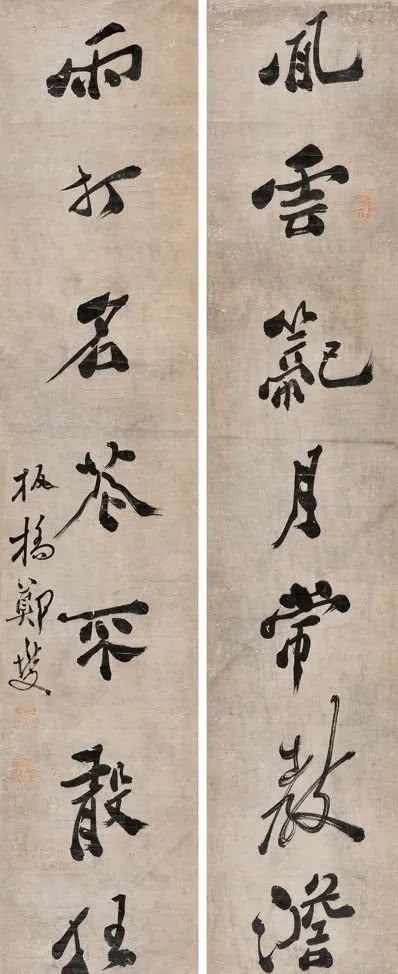 風雲籠月常教澹
雨打名花不敢狂
板橋鄭燮